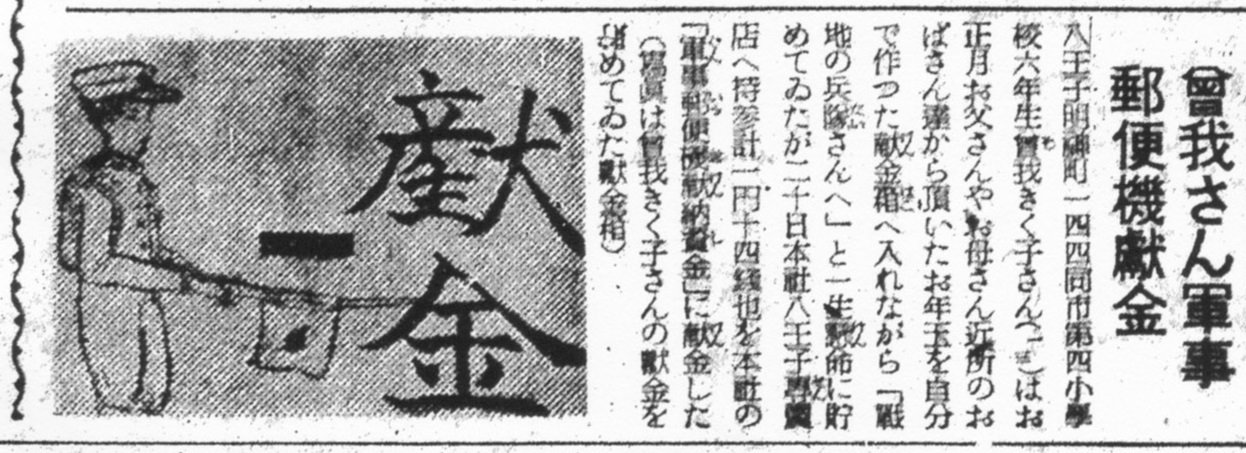 曾我さん軍事
郵便機獻金
八王子明神町一四四同市第四小學
校六年生曾我きく子さん(一三)はお
正月お父さんやお母さん近所のお
ばさん達から頂いたお年玉を自分
で作つた献金箱へ入れながら「戰
地の兵隊さんへ」と一生懸命に貯
めてゐたが二十日本社八王子專賣
店へ持参計一円十四錢也を本社の
「軍事郵便機献納資金」に献金した
(寫眞は曾我きく子さんの献金を
貯めてゐた獻金箱)
献
金